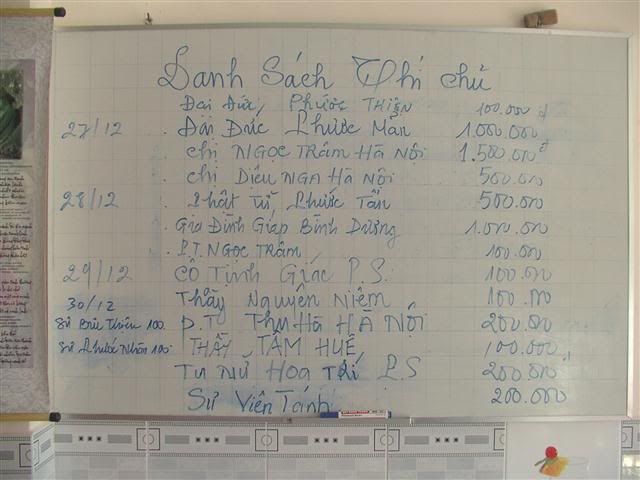 Danh Sách Thí chủ
Đại Đức, Phước Thiện 100.000 đ
27/12 . Đại Đức Phước Mãn 1.000.000
. chị NGỌC TRÂM HÀ NỘI 1.500.000 đ
. chị DIỆU NGA HÀ NỘI 500.000
28/12 . Phật tử Phước Tấn 500.000
. Gia Đình Giáp Bình Dương 1.000.000
. P.T. NGỌC TRÂM 100.000
29/12 CÔ Tịnh Giác P.S. 100.000
30/12 Thầy Nguyên Niệm 100.000
Sư Bửu Thiên 100. P.T Thu Hà HÀ NỘI 200.000
Sư Phước Nhân 100. THẦY TÂM HUẾ 100.000
Tu NỮ Hoa Trí P.S 200.000
Sư Viên Tánh 200.000